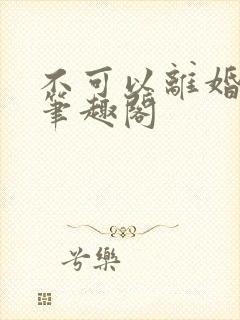 不可以離婚
筆趣閣
兮樂